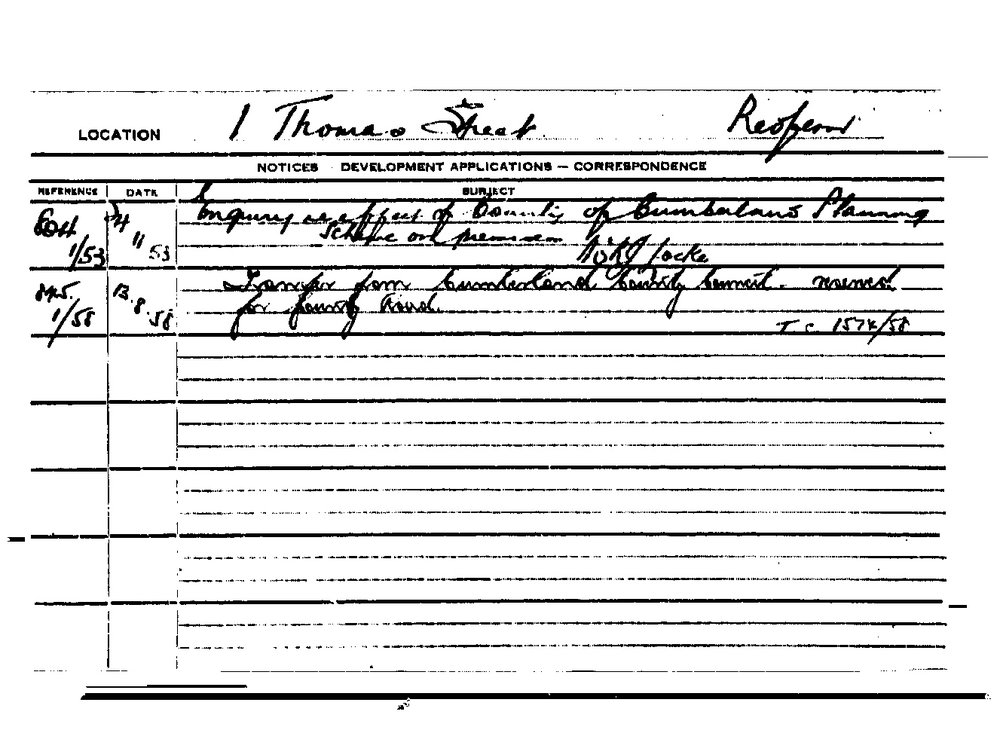 LOCATION 1 Thomas Street Redfern
NOTICES DEVELOPMENT APPLICATIONS — CORRESPONDENCE
REFERENCE DATE SUBJECT
1/53 24 11 53 Enquiry as effect of County of Cumberland Planning
Scheme on premises
1/58 13.8.58 Transfer from Cumberland County Council. resumed
for County Road.
T C 1574/58